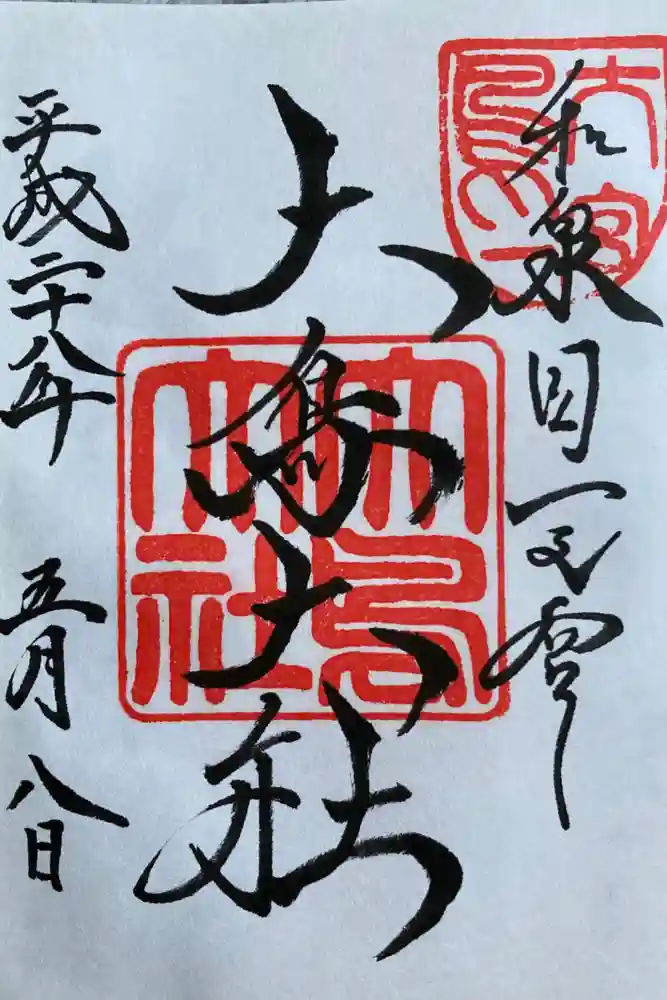 和泉国一之宮
大鳥大社
大鳥大社
平成二十八年 五月八日